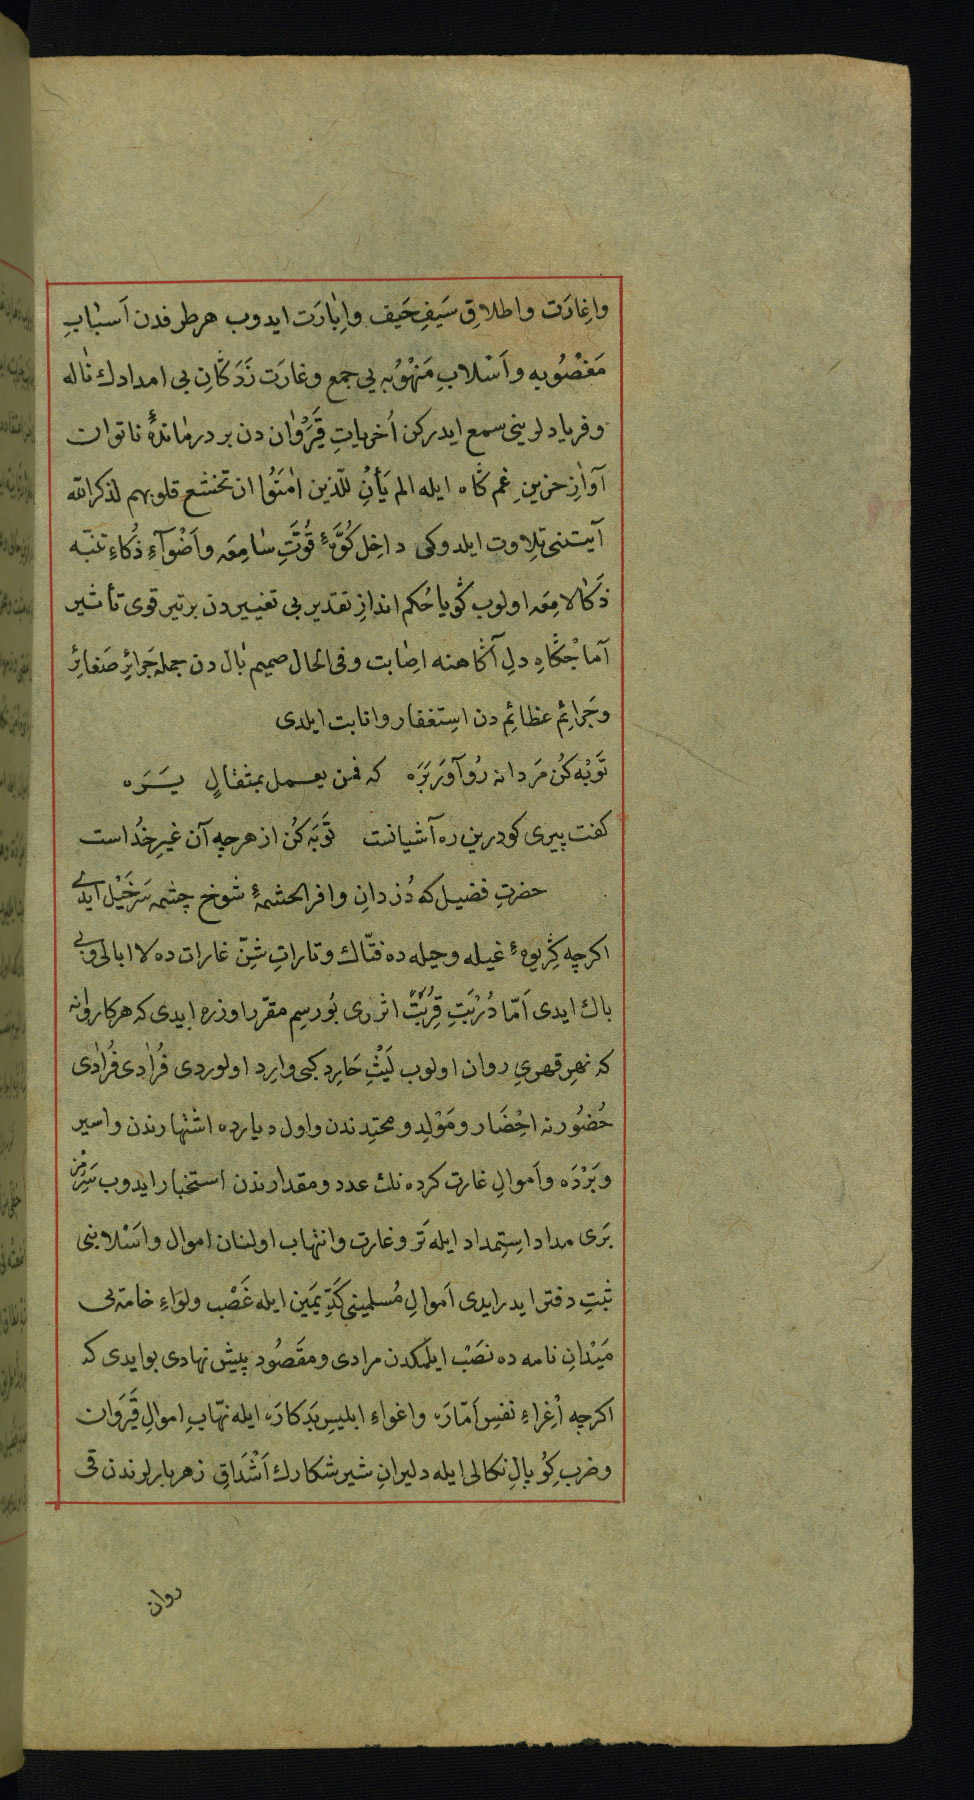 واِغارَت واطلاقِ سَيفِ حَيف واِبٰارَت ايدوب هرطرفدن اَسبٰابِ
مَغْصُوبه واَسْلابِ مَنهْوُبه يى جمع وغارَت زَدَكٰانِ بى امدادك نٰاله
وفرياد لرينى سمع ايدركن اُخرياتِ قَيْرَوٰان دن بر درمٰاندهٔ ناتوان
آوازِ حزينِ غم كٰاه ايله الم يَأنِ للّذين اٰمنَوُا ان تخشع قلوبهم لذكرالله
آيتنى تِلاوت ايلدوكى داخِل كُوّهٔ قُوّتِ سٰامِعَه واَضْوآءِ ذُكاءِ تنبّه
ذَكالامِعَه اولوب كويا حُكم اندازِ تقدير بى تغييردن برتير قوى تأثير
آماجْكاهِ دلِ آكاهنه اصابت وفى الحال صميم بٰال دن جمله جَرائرِ صَغائرْ
وجَرائِمِ عظائِم دن اِستِغفار وانابت ايلدى
تَوبْه كُن مَردانه رُو آوَر بَرَه كه فمن يعــمل بمثقالٍ يَــرَه
كفت پيرى كو درين ره آشيانست تَوبَه كُن از هرچه آن غيرِ خُداست
حضرتِ فضيل كه دُزدانِ وافر الحشمهٔ شوخ چشمه سَرخَيْل ايدى
اكرچه كِريوهٔ غيله وحيله ده فتّاك وتاراتِ شِنّ غارات ده لاابالى وبى
باك ايدى اَمّا دُرْبَتِ قِربَتْ اثرى بُو رسِم مقرّر اوزره ايدى كه هركاروٰانه
كه نهرِ قهرىِ روان اولوب لَيْثِ حٰارِد كبى وارِد اولوردى فُرادى فُرادى
حُضُورنه اِحْضار ومَوْلِد ومحتِدندن واول ديارده اشتهارندن واسير
وبَرْدَه واَموالِ غارت كرده نك عدد ومقدارندن استخبار ايدوب سَرِ مْزْ
بَرى مداد اِستِمداد ايله تَر وغارت وانتهاب اولنان اموال واَسْلابنى
ثبتِ دفتر ايدرايدى اَموالِ مُسلمينى كَدِّ يَمين ايله غَصْب ولوٰاءِ خامَه بى
مَيْدانِ نامه ده نصَبْ ايلمكدن مرادى ومقَصُود پيش نهادى بوايدى كه
اكرچه اِغراءِ نفسِ اَمّارَه واغواءِ ابليسِ بَدكارَه ايله نهّابِ اموالِ قَيْرَوان
وضرب كُوپالِ نكالى ايله دليرانِ شير شكارك اَشْدٰاقِ زهربارلرندن قى
روان